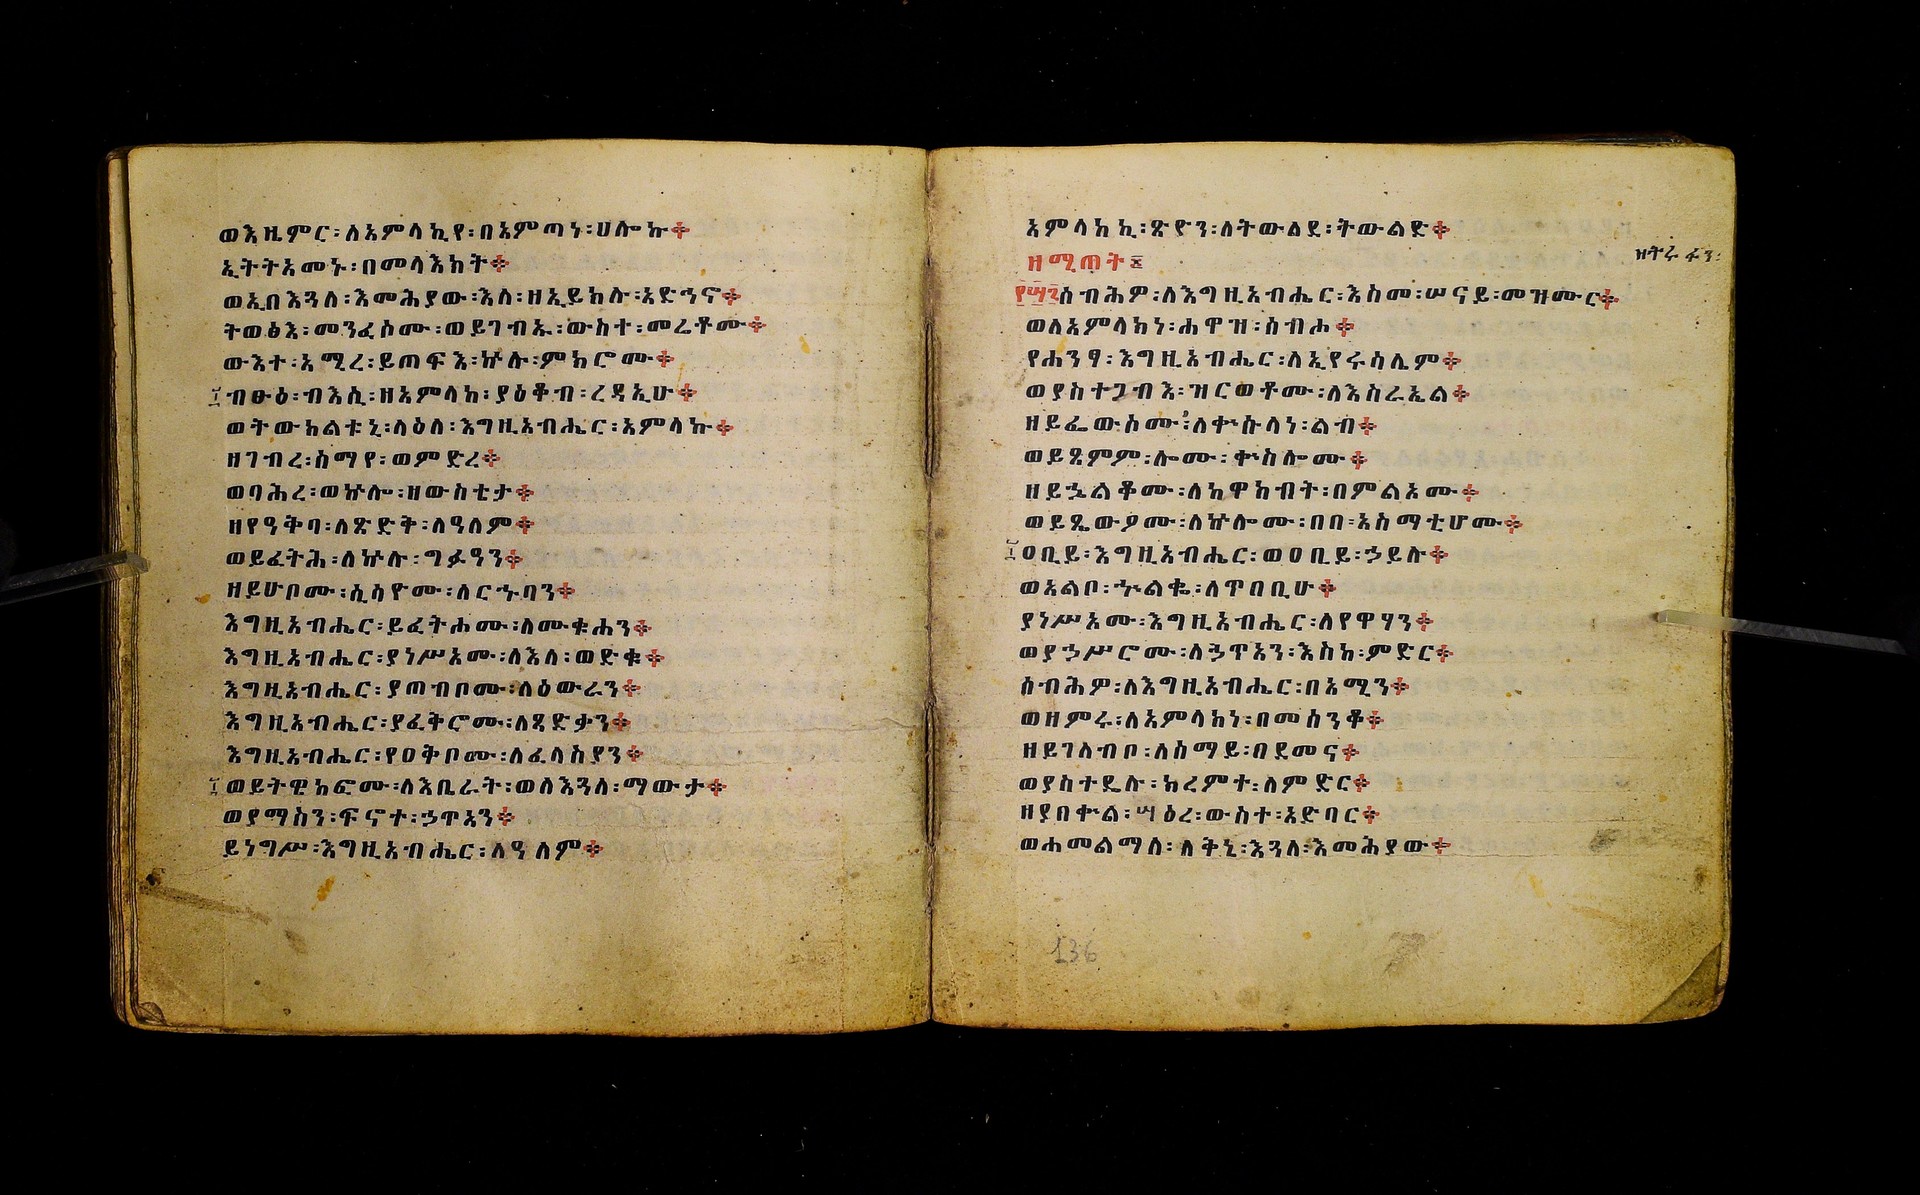 ወእዜምር፡ለአምላኪየ፡በአምጣነ፡ሀሎኩ፨
ኢትትአመኑ፡በመላእክት፨
ወኢበእጓለ፡እመሕያው፡እለ፡ዘኢይክሉ፡አድኅኖ፨
ትወፅእ፡መንፈስሙ፡ወይገብኡ፡ውስተ፡መሬቶሙ፨
ውእተ፡አሚረ፡ይጠፍእ፡ኵሉ፡ምክሮሙ፨
ብፁዕ፡ብእሲ፡ዘአምላከ፡ያዕቆብ፡ረዳኢሁ፨
ወትውክልቱኒ፡ላዕለ፡እግዚአብሔር፡አምላኩ፨
ዘገብረ፡ሰማየ፡ወምድረ፨
ወባሕረ፡ወኵሎ፡ዘውስቴታ፨
ዘየዓቅባ፡ለጽድቅ፡ለዓለም፨
ወይፈትሕ፡ለኵሉ፡ግፉዓን፨
ዘይሁቦሙ፡ሲሳዮሙ፡ለርኁባን፨
እግዚአብሔር፡ይፈትሖሙ፡ለሙቁሐን፨
እግዚአብሔር፡ያነሥአሙ፡ለእለ፡ወድቁ፨
እግዚአብሔር፡ያጠብቦሙ፡ለዕውራን፨
እግዚአብሔር፡ያፈቅሮሙ፡ለጻድቃን፨
እግዚአብሔር፡የዐቅቦሙ፡ለፈላስያን፨
ወይትዌከፎሙ፡ለእቤራት፡ወለእጓለ፡ማውታ፨
ወያማስን፡ፍኖተ፡ኃጥአን፨
ይነግሥ፡እግዚአብሔር፡ለዓለም፨
አምላክኪ፡ጽዮን፡ለትውልደ፡ትውልድ፨
ዘሚጠት፤
ዘትሩፋን፡
፻፵፮ሰብሕዎ፡ለእግዚአብሔር፡እስመ፡ሠናይ፡መዝሙር፨
ወለአምላክነ፡ሐዋዝ፡ሰብሖ፨
የሐንፃ፡እግዚአብሔር፡ለኢየሩሳሌም፨
ወያስተጋብእ፡ዝርወቶሙ፡ለእስራኤል፨
ዘይፌውሶሙ፡ለቍሱላነ፡ልብ፨
ወይጼምም፡ሎሙ፡ቍስሎሙ፨
ዘይኌልቆሙ፡ለከዋክብት፡በምልአሙ፨
ወይጼውዖሙ፡ለኵሎሙ፡በበ፡አስማቲሆሙ፨
ዐቢይ፡እግዚአብሔር፡ወዐቢይ፡ኃይሉ፨
ወአልቦ፡ኍልቈ፡ለጥበቢሁ፨
ያነሥአሙ፡እግዚአብሔር፡ለየዋሃን፨
ወያኃሥሮሙ፡ለኃጥአን፡እስከ፡ምድር፨
ሰብሕዎ፡ለእግዚአብሔር፡በአሚን፨
ወዘምሩ፡ለአምላክነ፡በመሰንቆ፨
ዘይገለብቦ፡ለሰማይ፡በደመና፨
ወያስተዴሉ፡ክረምተ፡ለምድር፨
ዘያበቍል፡ሣዕረ፡ውስተ፡አድባር፨
ወሐመልማለ፡ለቅኔ፡እጓለ፡እመሕያው፨
136